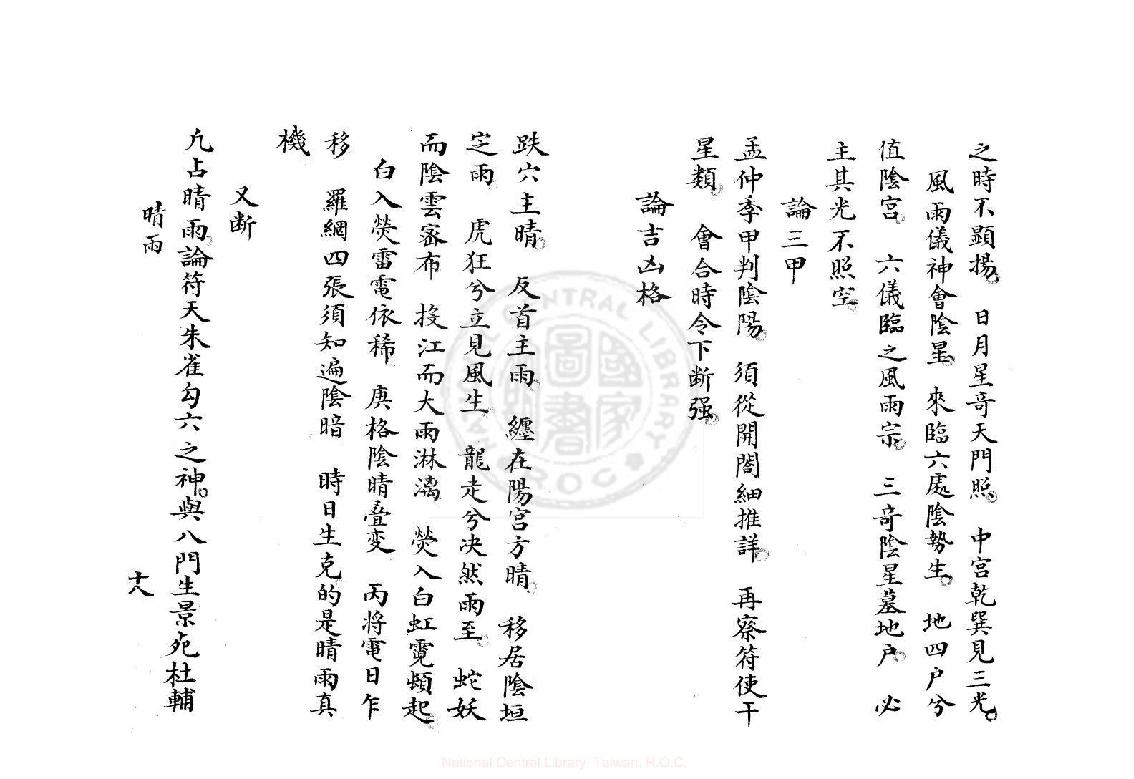 之時不顯揚。　日月星奇天門照。　中宮乾巽見三光。
風雨儀神會陰星。　來臨六處陰勢生。　地四户兮
值陰宮。　六儀臨之風雨宗。　三奇陰星墓地户。　必
主其光不照空。
論三甲
孟仲季甲判陰陽。　須從開闔細推詳。　再察符使干
星類。　會合時令下断强。
論吉凶格
跌穴主晴。　反首主雨。　纏在陽宮方晴。　移居陰垣
定雨。　虎狂兮立見風生。　龍走兮决然雨至。　蛇妖
而陰雲密布　投江而大雨淋漓　熒入白虹霓頓起。
白入熒雷電依稀　庚格陰晴叠变　丙將電日乍
移　羅網四張須知遍陰暗　時日生克的是晴雨真
機
又断
凢占晴雨。論符天朱雀勾六之神。與八門生景死杜輔
晴雨
十八
NATIONAL CENTRAL LIBRARY
R.O.C.
國家圖書館
National Central Library, Taiwan, R.O.C.